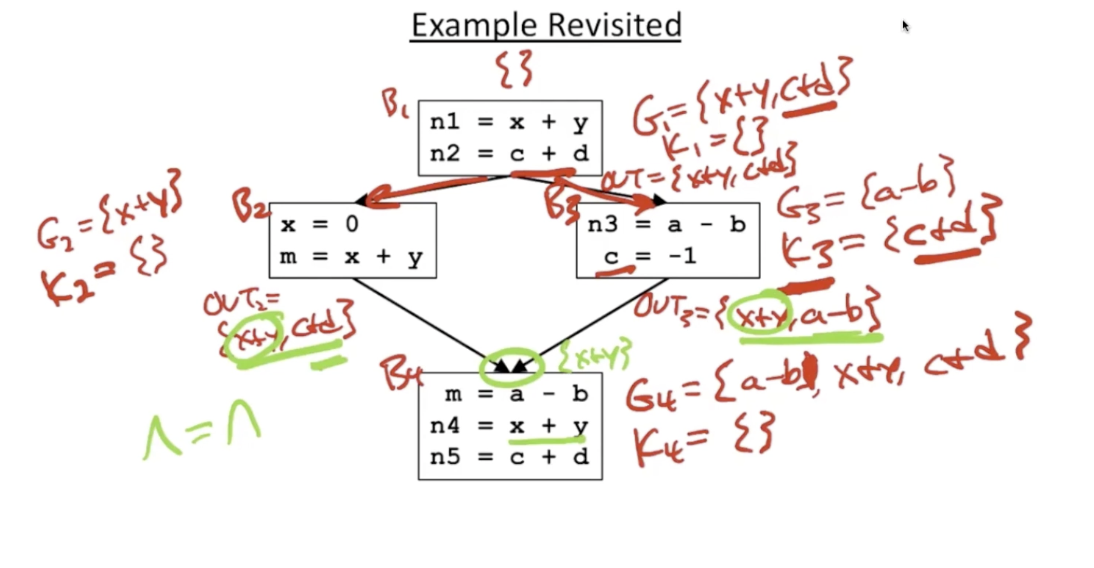 Example Revisited
{}
B1
n1 = x + y
n2 = c + d
G1 = {x+y, c+d}
K1 = {}
OUT = {x+y, c+d}
G2 = {x+y}
K2 = {}
B2
x = 0
m = x + y
B3
n3 = a - b
c = -1
G3 = {a-b}
K3 = {c+d}
OUT2 =
{x+y, c+d}
OUT3 = {x+y, a-b}
{x+y}
B4
m = a - b
n4 = x + y
n5 = c + d
G4 = {a-b, x+y, c+d}
K4 = {}
Λ = ∩